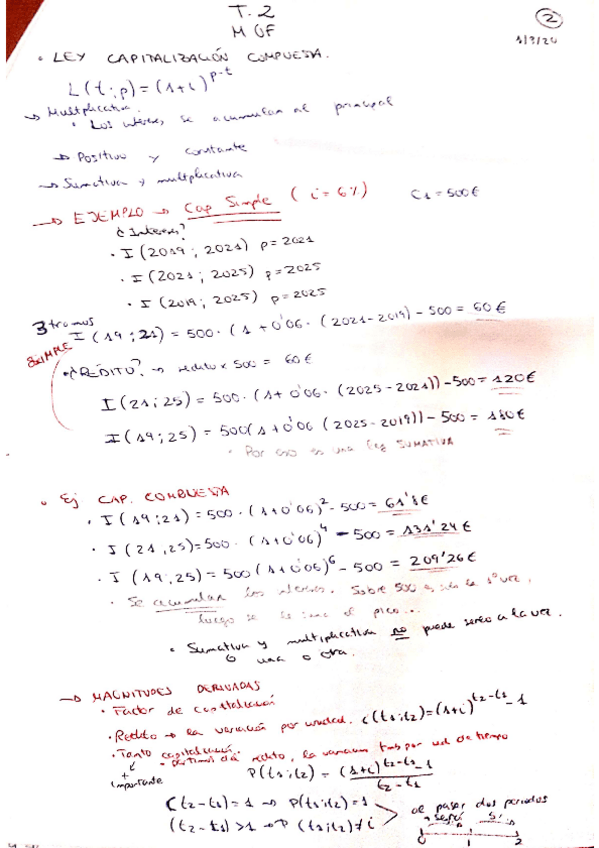 T. 2
2
M OF
1/3/24
• LEY CAPITALIZACIÓN COMPUESTA.
L(t;p)=(1+i)^p-t
→ Multiplicativa.
• Los intereses se acumulan al principal
→ Positivo y constante
→ Sumativa y multiplicativa
→ EJEMPLO → Cap Simple (i=6%) C1=500€
¿Interes?
• I(2019; 2021) p=2021
• I(2021; 2025) p=2025
• I(2019; 2025) p=2025
3 tramos
I(19;21) = 500·(1+0'06·(2021-2019)-500 = 60€
SIMPLE
• ¿RÉDITO? → redito x 500 = 60€
I(21;25) = 500·(1+0'06·(2025-2021))-500=120€
I(19;25) = 500(1+0'06(2025-2019))-500 = 180€
• Por eso es una ley SUMATIVA
• Ej CAP. COMPUESTA
• I(19;21) = 500·(1+0'06)²-500= 61'8€
• I(21,25)=500·(1+0'06)⁴-500= 131'24€
• I(19,25)=500(1+0'06)⁶-500 = 209'26€
• Se acumulan los intereses. Sobre 500 1ª vez,
luego se le suma el pico...
• Sumativa y multiplicativa no puede serlo a la vez.
O una o otra.
→ MAGNITUDES DERIVADAS
• Factor de capitalización
• Redito → la variación por unidad. i(t1;t2)=(1+i)^t2-t1 -1
• Tanto capitalización. • partimos del redito, la variacion por ud de tiempo
+ importante
P(t1;t2) = (1+i)^t2-t1 -1 / t2-t1
(t2-t1)=1 → P(t1;t2)=i
(t2-t1)>1 → P(t1;t2)≠i
al pasar dos periodos
0 1 2